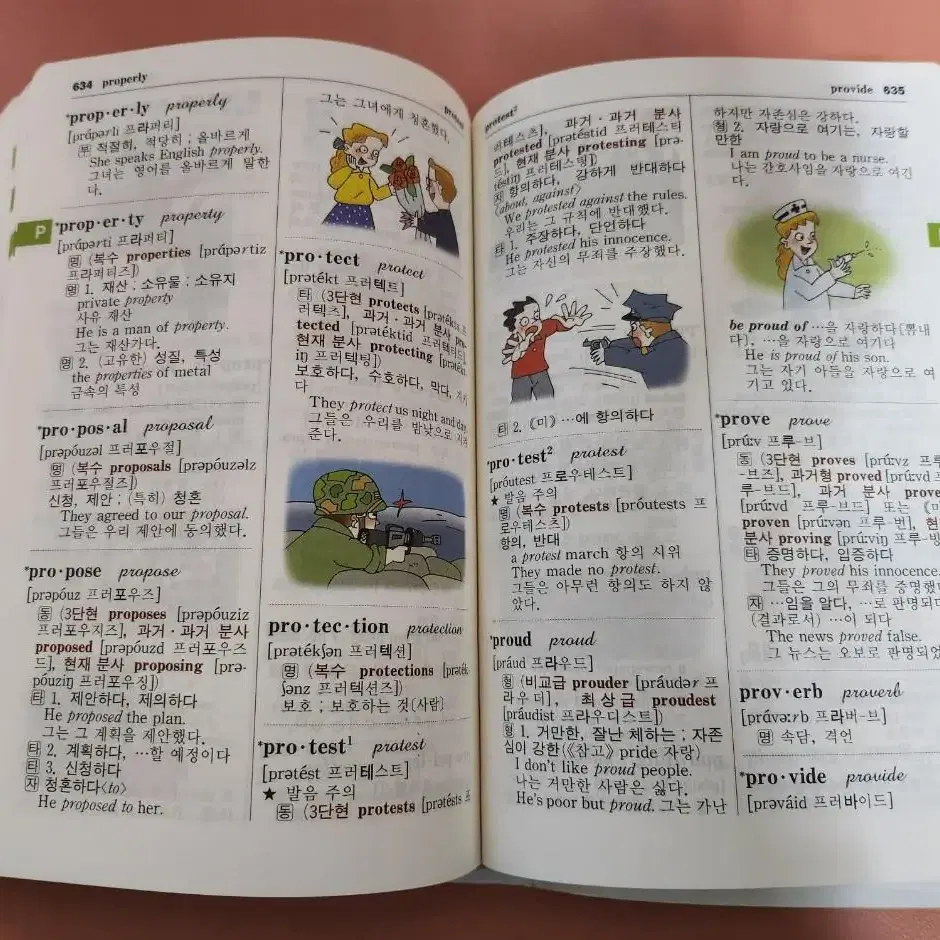 634 properly
*prop·er·ly properly
[prápərli 프라퍼리]
부 적절히, 적당히 ; 올바르게
She speaks English properly.
그녀는 영어를 올바르게 말한
다.
P
*prop·er·ty property
[prápərti 프라퍼티]
명 (복수 properties [prápərtiz
프라퍼티즈])
명 1. 재산 ; 소유물 ; 소유지
private property
사유 재산
He is a man of property.
그는 재산가다.
명 2. (고유한) 성질, 특성
the properties of metal
금속의 특성
*pro·pos·al proposal
[prəpóuzəl 프러포우절]
명 (복수 proposals [prəpóuzəlz
프러포우절즈])
신청, 제안 ; (특히) 청혼
They agreed to our proposal.
그들은 우리 제안에 동의했다.
*pro·pose propose
[prəpóuz 프러포우즈]
동 (3단현 proposes [prəpóuziz
프러포우지즈], 과거·과거 분사
proposed [prəpóuzd 프러포우즈
드], 현재 분사 proposing [prə-
póuziŋ 프러포우징])
타 1. 제안하다, 제의하다
He proposed the plan.
그는 그 계획을 제안했다.
타 2. 계획하다, …할 예정이다
타 3. 신청하다
자 청혼하다<to>
He proposed to her.
그는 그녀에게 청혼했다.
*pro·tect protect
[prətékt 프러텍트]
타 (3단현 protects [prətékts
러텍츠], 과거·과거 분사 pro-
tected [prətéktid 프러텍티드],
현재 분사 protecting [prəték-
iŋ 프러텍팅])
보호하다, 수호하다, 막다,
다
They protect us night and day.
그들은 우리를 밤낮으로
준다.
pro·tec·tion protection
[prətékʃən 프러텍션]
명 (복수 protections [prəték-
ʃənz 프러텍션즈])
보호 ; 보호하는 것(사람)
*pro·test¹ protest
[prətést 프러테스트]
★ 발음 주의
동 (3단현 protests [prətésts 프
protest²
러테스츠], 과거·과거 분사
protested [prətéstid 프러테스티
드], 현재 분사 protesting [prə-
téstiŋ 프러테스팅])
자 항의하다, 강하게 반대하다
<about, against>
We protested against the rules.
우리는 그 규칙에 반대했다.
타 1. 주장하다, 단언하다
He protested his innocence.
그는 자신의 무죄를 주장했다.
타 2. 《미》 …에 항의하다
*pro·test² protest
[próutest 프로우테스트]
★ 발음 주의
명 (복수 protests [próutests 프
로우테스츠])
항의, 반대
a protest march 항의 시위
They made no protest.
그들은 아무런 항의도 하지 않
았다.
*proud proud
[práud 프라우드]
형 (비교급 prouder [práudər 프
라우더], 최상급 proudest
[práudist 프라우디스트])
형 1. 거만한, 잘난 체하는 ; 자존
심이 강한(《참고》 pride 자랑)
I don't like proud people.
나는 거만한 사람은 싫다.
He's poor but proud. 그는 가난
provide 635
하지만 자존심은 강하다.
형 2. 자랑으로 여기는, 자랑할
만한
I am proud to be a nurse.
나는 간호사임을 자랑으로 여긴
다.
be proud of …을 자랑하다(뽐내
다), …을 자랑으로 여기다
He is proud of his son.
그는 자기 아들을 자랑으로 여
기고 있다.
*prove prove
[prúːv 프루-브]
동 (3단현 proves [prúːvz 프루
-브즈], 과거형 proved [prúːvd 프
루-브드], 과거 분사 prove
[prúːvd 프루-브드] 또는 《미
proven [prúːvən 프루-번], 현
분사 proving [prúːviŋ 프루-빙
타 증명하다, 입증하다
They proved his innocence.
그들은 그의 무죄를 증명했
자 …임을 알다, …로 판명되다
(결과로서) …이 되다
The news proved false.
그 뉴스는 오보로 판명되었
prov·erb proverb
[právəːrb 프라버-브]
명 속담, 격언
*pro·vide provide
[prəváid 프러바이드]